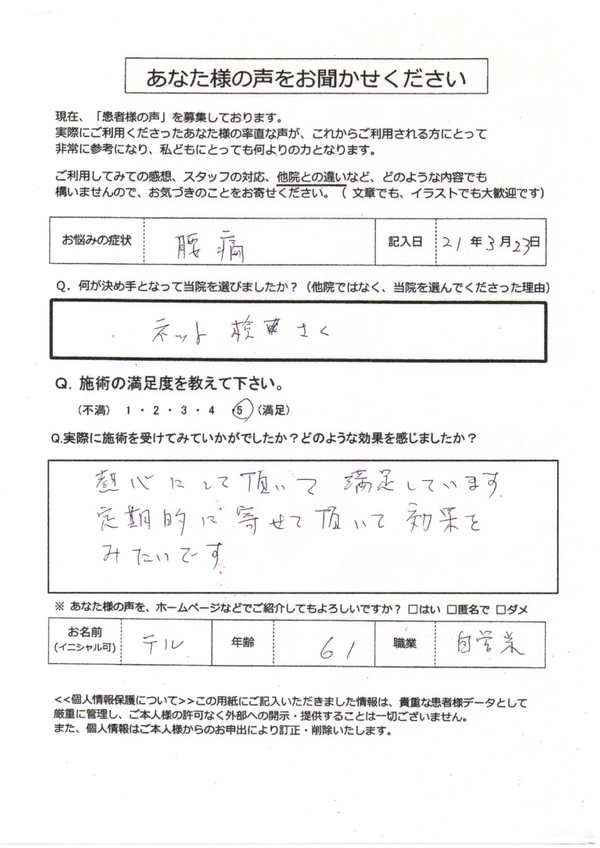 あなた様の声をお聞かせください
現在、「患者様の声」を募集しております。
実際にご利用くださったあなた様の率直な声が、これからご利用される方にとって
非常に参考になり、私どもにとっても何よりの力となります。
ご利用してみての感想、スタッフの対応、他院との違いなど、どのような内容でも
構いませんので、お気づきのことをお寄せください。（文章でも、イラストでも大歓迎です）
お悩みの症状 腰痛 記入日 21年3月23日
Q. 何が決め手となって当院を選びましたか？（他院ではなく、当院を選んでくださった理由）
ネット検さく
Q. 施術の満足度を教えて下さい。
（不満） 1・2・3・4・5（満足）
Q.実際に施術を受けてみていかがでしたか？どのような効果を感じましたか？
熱心にして頂いて 満足しています
定期的に寄せて頂いて効果を
みたいです
※ あなた様の声を、ホームページなどでご紹介してもよろしいですか？ □はい □匿名で □ダメ
お名前 テル 年齢 61 職業 自営業
(イニシャル可)
<<個人情報保護について>>この用紙にご記入いただきました情報は、貴重な患者様データとして
厳重に管理し、ご本人様の許可なく外部への開示・提供することは一切ございません。
また、個人情報はご本人様からのお申出により訂正・削除いたします。